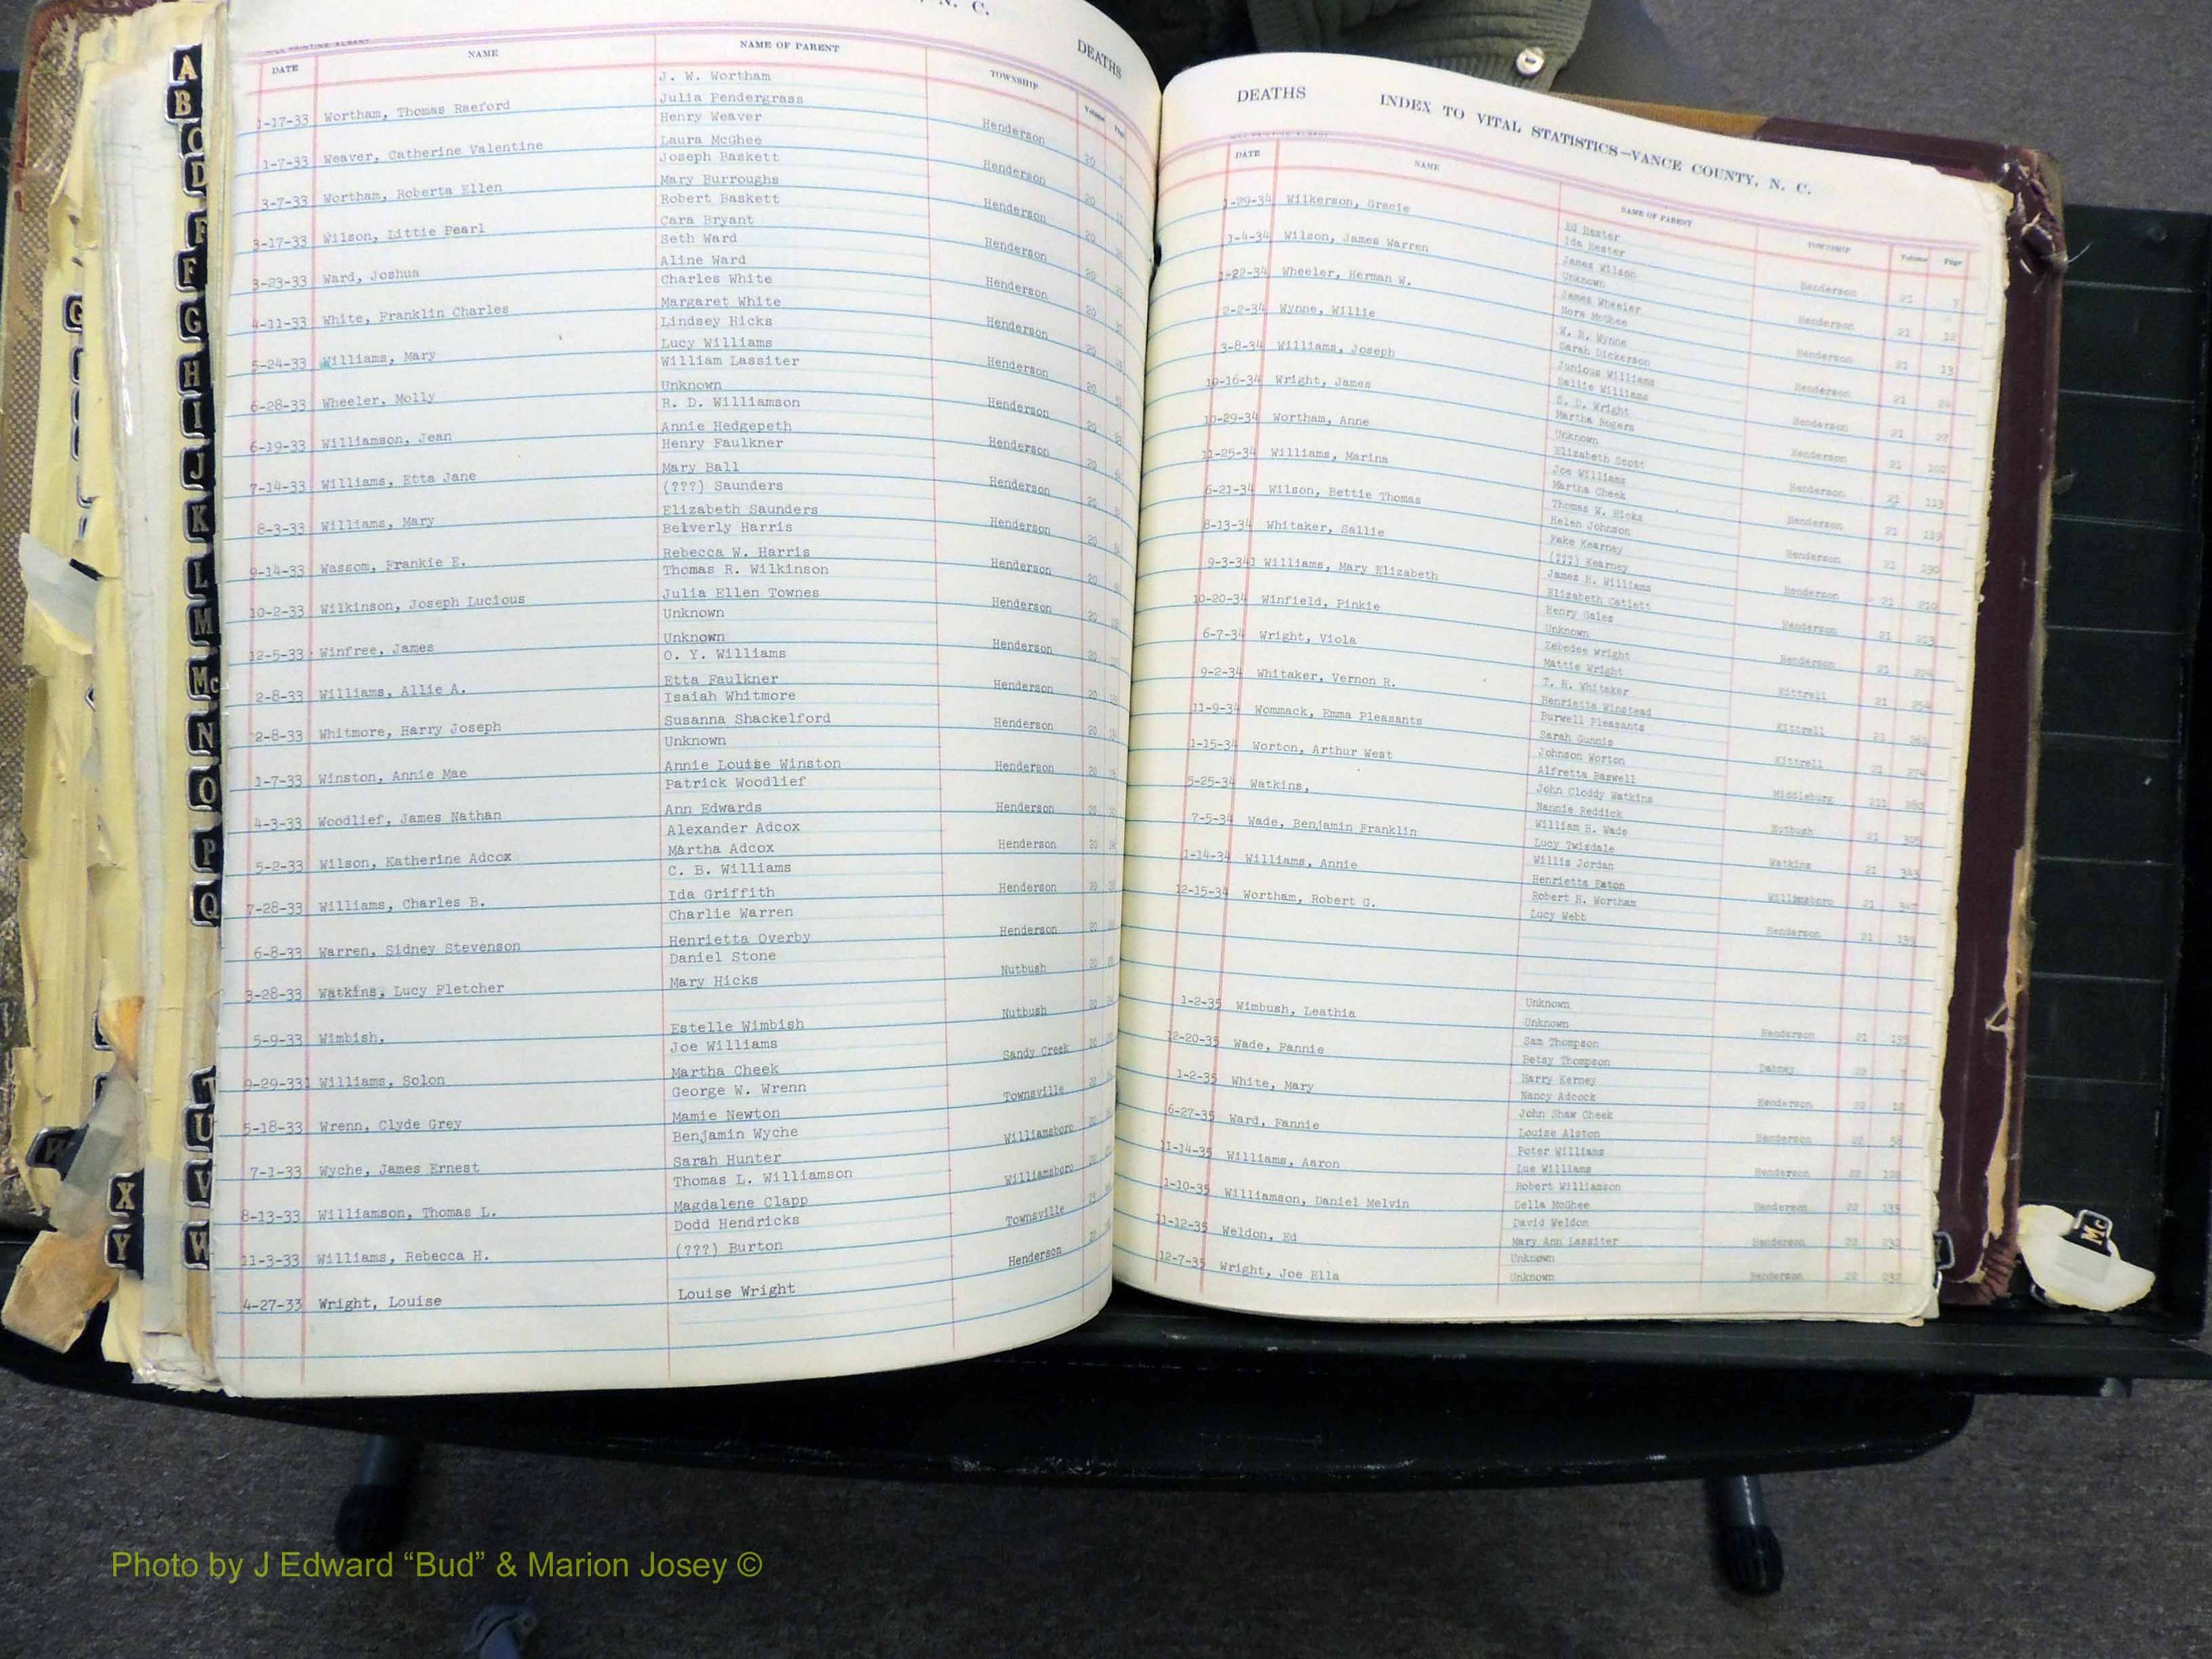 , N. C.
DEATHS
DATE NAME NAME OF PARENT TOWNSHIP Volume Page
1-17-33 Wortham, Thomas Raeford J. W. Wortham
Julia Pendergrass Henderson 20
1-7-33 Weaver, Catherine Valentine Henry Weaver
Laura McGhee Henderson 20
3-7-33 Wortham, Roberta Ellen Joseph Baskett
Mary Burroughs Henderson 20
3-17-33 Wilson, Littie Pearl Robert Baskett
Cara Bryant Henderson 20
3-23-33 Ward, Joshua Seth Ward
Aline Ward Henderson 20
4-11-33 White, Franklin Charles Charles White
Margaret White Henderson 20
5-24-33 Williams, Mary Lindsey Hicks
Lucy Williams Henderson 20
6-28-33 Wheeler, Molly William Lassiter
Unknown Henderson 20
6-19-33 Williamson, Jean R. D. Williamson
Annie Hedgepeth Henderson 20
7-14-33 Williams, Etta Jane Henry Faulkner
Mary Ball Henderson 20
8-3-33 Williams, Mary (???) Saunders
Elizabeth Saunders Henderson 20
9-14-33 Wassom, Frankie E. Beiverly Harris
Rebecca W. Harris Henderson 20
10-2-33 Wilkinson, Joseph Lucious Thomas R. Wilkinson
Julia Ellen Townes Henderson 20
12-5-33 Winfree, James Unknown
Unknown Henderson 20
2-8-33 Williams, Allie A. O. Y. Williams
Etta Faulkner Henderson 20
2-8-33 Whitmore, Harry Joseph Isaiah Whitmore
Susanna Shackelford Henderson 20
1-7-33 Winston, Annie Mae Unknown
Annie Louise Winston Henderson 20
4-3-33 Woodlief, James Nathan Patrick Woodlief
Ann Edwards Henderson 20
5-2-33 Wilson, Katherine Adcox Alexander Adcox
Martha Adcox Henderson 20
7-28-33 Williams, Charles B. C. B. Williams
Ida Griffith Henderson 20
6-8-33 Warren, Sidney Stevenson Charlie Warren
Henrietta Overby Henderson 20
3-28-33 Watkins, Lucy Fletcher Daniel Stone
Mary Hicks Nutbush 20
5-9-33 Wimbish, Estelle Wimbish Nutbush 20
9-29-33 Williams, Solon Joe Williams
Martha Cheek Sandy Creek 20
5-18-33 Wrenn, Clyde Grey George W. Wrenn
Mamie Newton Townsville 20
7-1-33 Wyche, James Ernest Benjamin Wyche
Sarah Hunter Williamsboro 20
8-13-33 Williamson, Thomas L. Thomas L. Williamson
Magdalene Clapp Williamsboro
11-3-33 Williams, Rebecca H. Dodd Hendricks
(???) Burton Townsville
4-27-33 Wright, Louise Louise Wright Henderson
DEATHS INDEX TO VITAL STATISTICS—VANCE COUNTY, N. C.
DATE NAME NAME OF PARENT TOWNSHIP Volume Page
1-29-34 Wilkerson, Gracie Ed Hester
Ida Hester Henderson 21 7
1-4-34 Wilson, James Warren James Wilson
Unknown Henderson 21 12
1-22-34 Wheeler, Herman W. James Wheeler
Nora McGhee Henderson 21 13
2-2-34 Wynne, Willie W. H. Wynne
Sarah Dickerson Henderson 21 24
3-8-34 Williams, Joseph Junious Williams
Sallie Williams Henderson 21 27
10-16-34 Wright, James S. D. Wright
Martha Rogers Henderson 21
10-29-34 Wortham, Anne Unknown
Elizabeth Scott Henderson 21 113
11-25-34 Williams, Marina Joe Williams
Martha Cheek Henderson 21 119
6-21-34 Wilson, Bettie Thomas Thomas W. Hicks
Helen Johnson Henderson 21 190
8-13-34 Whitaker, Sallie Fake Kearney
(???) Kearney Henderson 21 210
9-3-34 Williams, Mary Elizabeth James H. Williams
Elizabeth Catlett Henderson 21 213
10-20-34 Winfield, Pinkie Henry Gales
Unknown Henderson 21
6-7-34 Wright, Viola Zebedee Wright
Mattie Wright Kittrell 21 254
9-2-34 Whitaker, Vernon R. T. H. Whitaker
Henrietta Winstead Kittrell 21
11-9-34 Wommack, Emma Pleasants Burwell Pleasants
Sarah Gunnis Kittrell 21
1-15-34 Worton, Arthur West Johnson Worton
Alfretta Baswell Middleburg
5-25-34 Watkins, John Cloddy Watkins
Nannie Reddick Nutbush 21
7-5-34 Wade, Benjamin Franklin William H. Wade
Lucy Twisdale Watkins 21
1-14-34 Williams, Annie Willis Jordan
Henrietta Eaton Williamsboro 21
12-15-34 Wortham, Robert G. Robert H. Wortham
Lucy Webb Henderson 21
1-2-35 Wimbush, Leathia Unknown
Unknown Henderson 21
12-20-35 Wade, Fannie Sam Thompson
Betsy Thompson Dabney 22
1-2-35 White, Mary Harry Kerney
Nancy Adcock Henderson 22
6-27-35 Ward, Fannie John Shaw Cheek
Louise Alston Henderson 22
11-14-35 Williams, Aaron Peter Williams
Lue Williams Henderson 22
1-10-35 Williamson, Daniel Melvin Robert Williamson
Della McGhee Henderson 22
11-12-35 Weldon, Ed David Weldon
Mary Ann Lassiter Henderson 22
12-7-35 Wright, Joe Ella Unknown
Unknown Henderson 22
A
B
C
D
F
G
H
I
J
K
L
M
Mc
N
O
P
Q
U
V
W
X
Y
G
W
Mc
Photo by J Edward “Bud” & Marion Josey ©